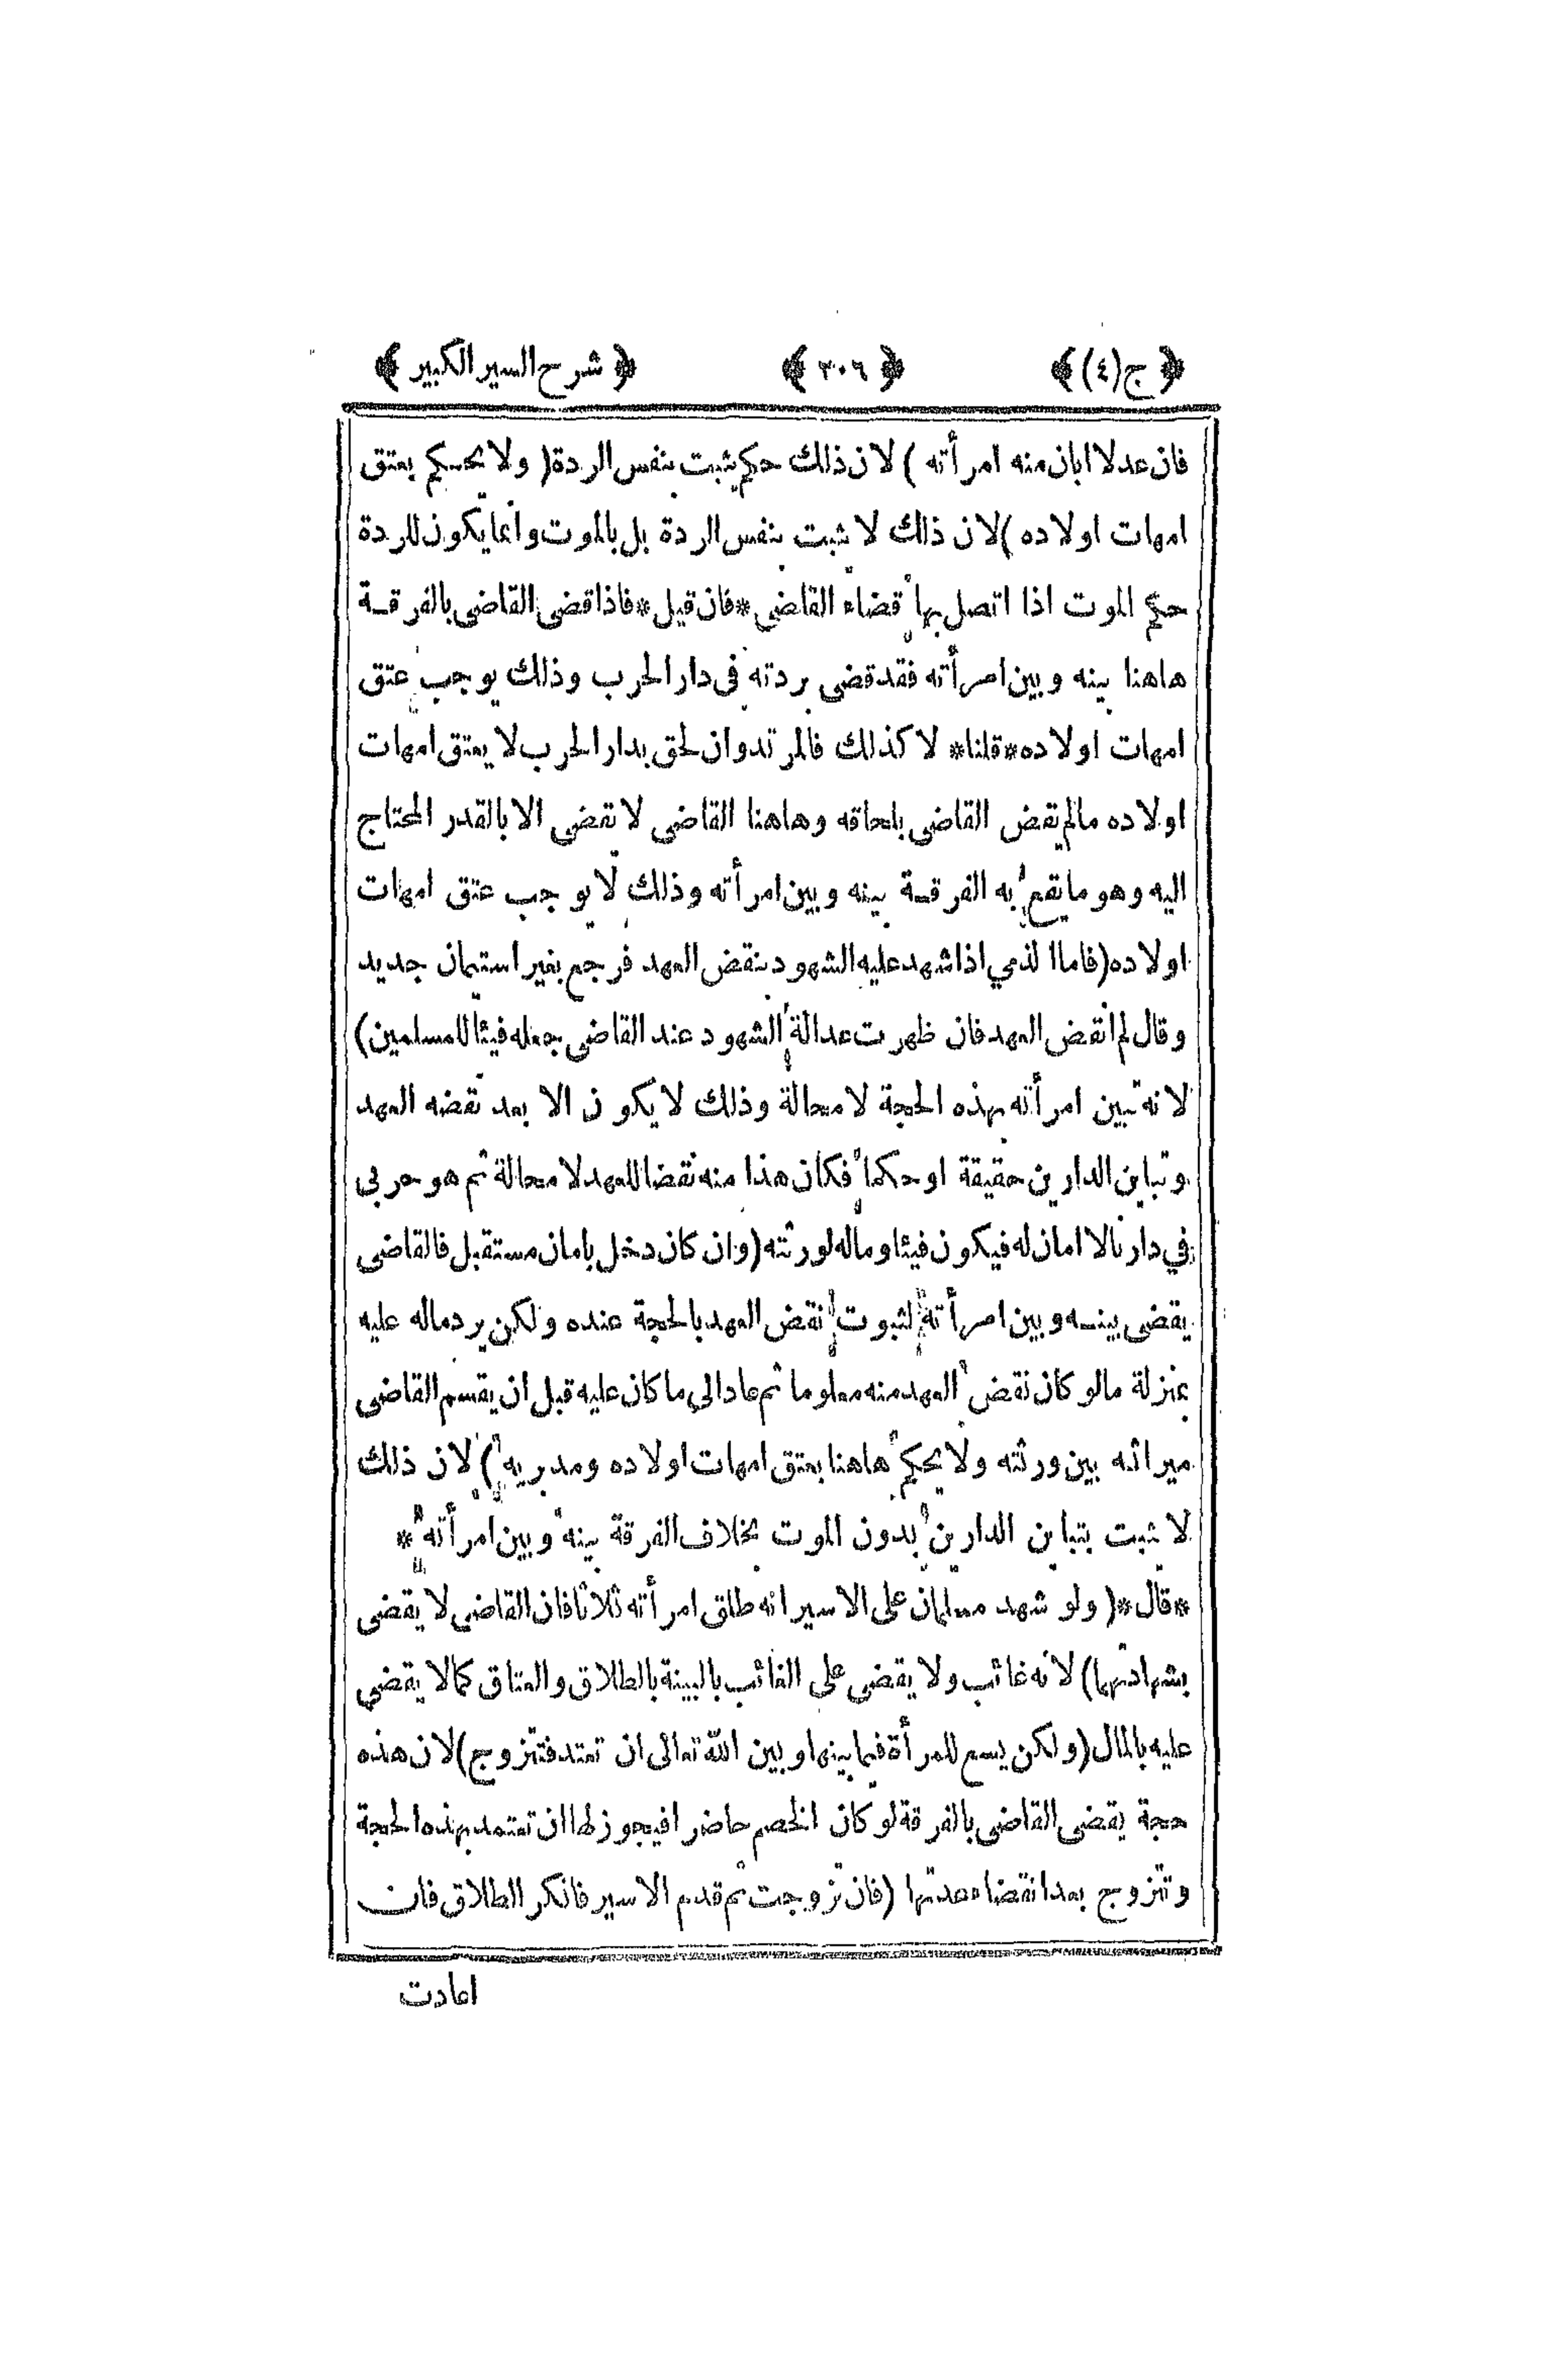 ﴿ ج(٤) ﴾ ﴿ ٢٠٦ ﴾ ﴿ شرح السير الكبير ﴾
فان عدلا ابان منه امرأته ) لان ذلك حكم يثبت بنفس الردة ( ولا يحكم بعتق
امهات اولاده ) لان ذلك لا يثبت بنفس الردة بل بالموت وانما يكون للردة
حكم الموت اذا اتصل بها قضاء القاضى *فان قيل* فاذا قضى القاضى بالفرقة
هاهنا بينه وبين امرأته فقد قضى بردته فى دار الحرب وذلك يوجب عتق
امهات اولاده *قلنا* لا كذلك فالمرتد وان لحق بدار الحرب لا يعتق امهات
اولاده مالم يقض القاضى بلحاقه وهاهنا القاضى لا يقضى الا بالقدر المحتاج
اليه وهو ما يقع به الفرقة بينه وبين امرأته وذلك لا يوجب عتق امهات
اولاده ( فاما الذمي اذا شهد عليه الشهود بنقض العهد فرجع بغير استيمان جديد
وقال لم انقض العهد فان ظهرت عدالة الشهود عند القاضى جعله فيئا للمسلمين )
لانه تبين امرأته بهذه الحجة لا محالة وذلك لا يكون الا بعد نقضه العهد
وتباين الدارين حقيقة او حكما فكان هذا منه نقضا للعهد لا محالة ثم هو حربى
في دارنا لا امان له فيكون فيئا وماله لورثته ( وان كان دخل بامان مستقبل فالقاضى
يقضى بينه وبين امرأته لثبوت نقض العهد بالحجة عنده ولكن يرد ماله عليه
بمنزلة مالو كان نقض العهد منه معلوما ثم عاد الي ما كان عليه قبل ان يقسم القاضى
ميراثه بين ورثته ولا يحكم هاهنا بعتق امهات اولاده ومدبريه ) لان ذلك
لا يثبت بتباين الدارين بدون الموت بخلاف الفرقة بينه وبين امرأته *
*قال* ( ولو شهد مسلمان على الاسير انه طلق امرأته ثلاثا فان القاضي لا يقضى
بشهادتهما ) لانه غائب ولا يقضى على الغائب بالبينة بالطلاق والعتاق كمالا يقضي
عليه بالمال ( ولكن يسع للمرأة فيما بينها وبين الله تعالى ان تعتد فتتزوج ) لان هذه
حجة يقضى القاضى بالفرقة لو كان الخصم حاضرا فيجوز لها ان تعتمد بهذه الحجة
وتتزوج بعد انقضاء عدتها ( فان تزوجت ثم قدم الاسير فانكر الطلاق فان
اعادت